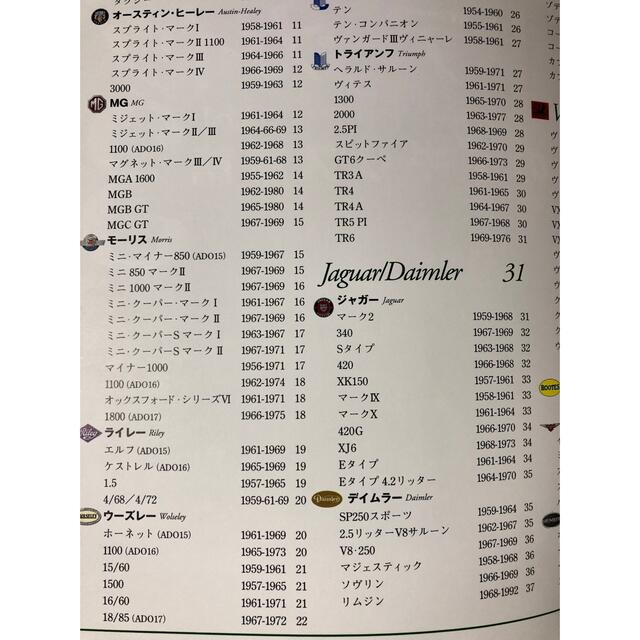 オースティン・ヒーレー Austin-Healey
スプライト・マークⅠ 1958-1961 11
スプライト・マークⅡ 1100 1961-1964 11
スプライト・マークⅢ 1964-1966 11
スプライト・マークⅣ 1966-1969 12
3000 1959-1963 12
MG MG
ミジェット・マークⅠ 1961-1964 12
ミジェット・マークⅡ/Ⅲ 1964-66-69 13
1100 (ADO16) 1962-1968 13
マグネット・マークⅢ/Ⅳ 1959-61-68 13
MGA 1600 1955-1962 14
MGB 1962-1980 14
MGB GT 1965-1980 14
MGC GT 1967-1969 15
モーリス Morris
ミニ・マイナー850 (ADO15) 1959-1967 15
ミニ 850 マークⅡ 1967-1969 15
ミニ 1000 マークⅡ 1967-1969 16
ミニ・クーパー・マークⅠ 1961-1967 16
ミニ・クーパー・マークⅡ 1967-1969 16
ミニ・クーパーS マークⅠ 1963-1967 17
ミニ・クーパーS マークⅡ 1967-1971 17
マイナー1000 1956-1971 17
1100 (ADO16) 1962-1974 18
オックスフォード・シリーズⅥ 1961-1971 18
1800 (ADO17) 1966-1975 18
Riley
ライレー Riley
エルフ (ADO15) 1961-1969 19
ケストレル (ADO16) 1965-1969 19
1.5 1957-1965 19
4/68/4/72 1959-61-69 20
ウーズレー Wolseley
ホーネット (ADO15) 1961-1969 20
1100 (ADO16) 1965-1973 20
15/60 1959-1961 21
1500 1957-1965 21
16/60 1961-1971 21
18/85 (ADO17) 1967-1972 22
テン 1954-1960 26
テン・コンパニオン 1955-1961 26
ヴァンガードⅢヴィニャーレ 1958-1961 27
トライアンフ Triumph
ヘラルド・サルーン 1959-1971 27
ヴィテス 1961-1971 27
1300 1965-1970 28
2000 1963-1977 28
2.5PI 1968-1969 28
スピットファイア 1962-1970 29
GT6クーペ 1966-1973 29
TR3 A 1958-1961 29
TR4 1961-1965 30
TR4 A 1964-1967 30
TR5 PI 1967-1968 30
TR6 1969-1976 31
Jaguar/Daimler 31
ジャガー Jaguar
マーク2 1959-1968 31
340 1967-1969 32
Sタイプ 1963-1968 32
420 1966-1968 32
XK150 1957-1961 33
マークⅨ 1958-1961 33
マークX 1961-1964 33
420G 1966-1970 34
XJ6 1968-1973 34
Eタイプ 1961-1964 34
Eタイプ 4.2リッター 1964-1970 35
Daimler
デイムラー Daimler
SP250スポーツ 1959-1964 35
2.5リッターV8サルーン 1962-1967 35
V8・250 1967-1969 36
マジェスティック 1958-1968 36
ソヴリン 1966-1969 36
リムジン 1968-1992 37
ROOTES